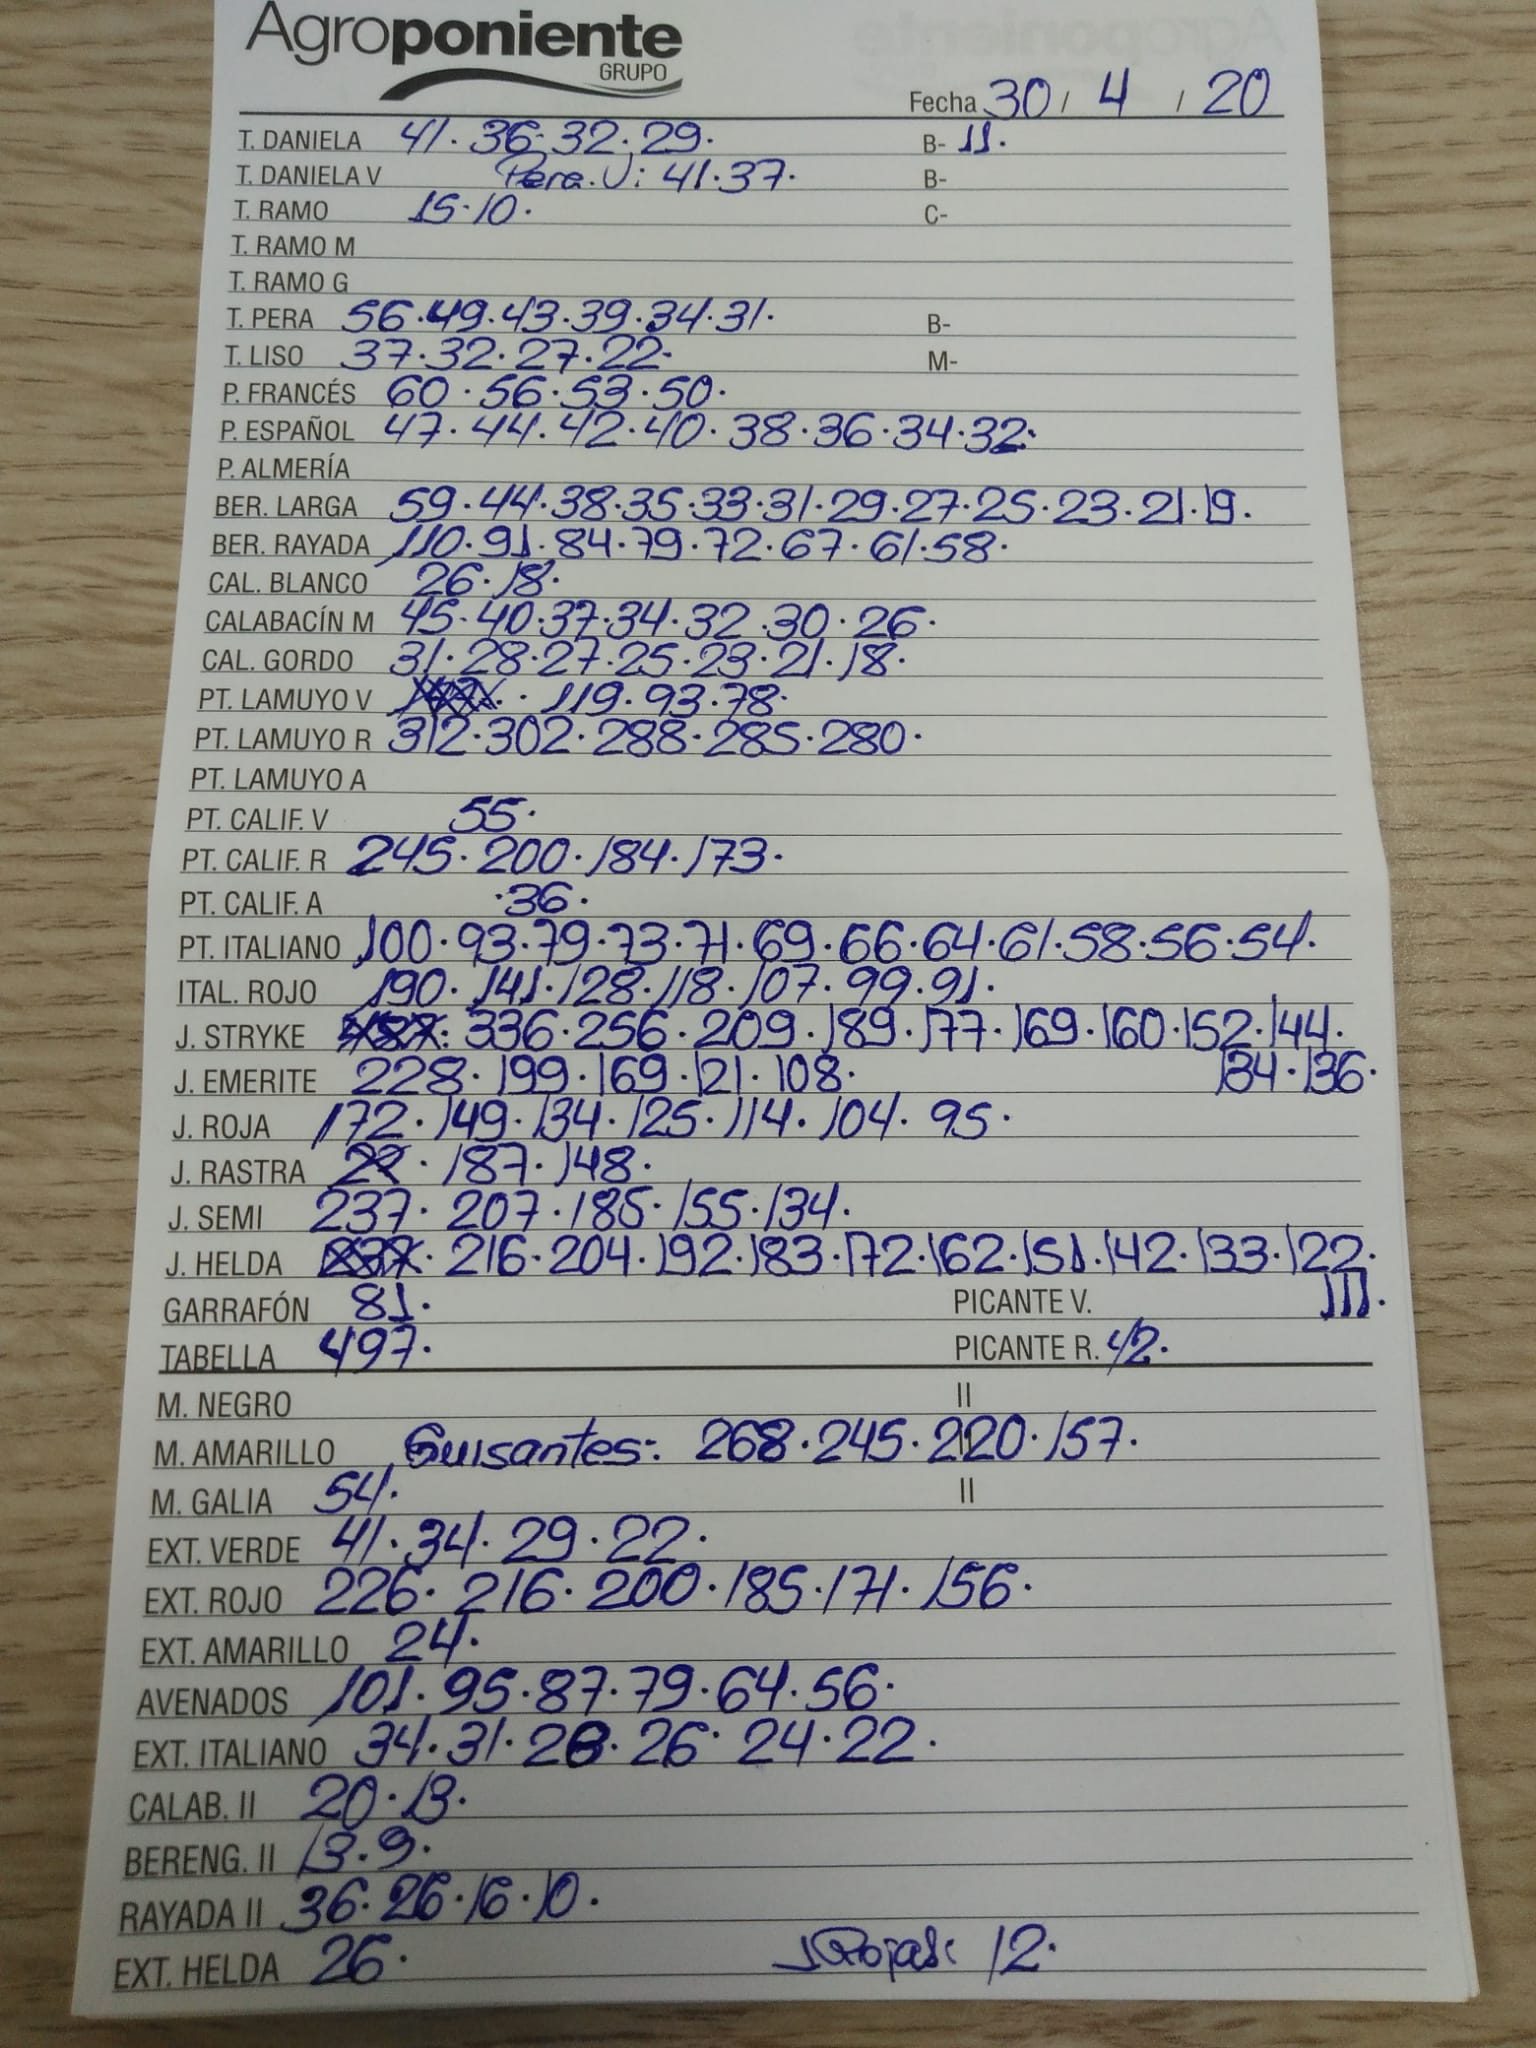 Agroponiente
GRUPO
Fecha 30 / 4 / 20
T. DANIELA 41. 36. 32. 29. B- 11.
T. DANIELA V Pera. V: 41. 37. B-
T. RAMO 15. 10. C-
T. RAMO M
T. RAMO G
T. PERA 56. 49. 43. 39. 34. 31. B-
T. LISO 37. 32. 27. 22. M-
P. FRANCÉS 60. 56. 53. 50.
P. ESPAÑOL 47. 44. 42. 40. 38. 36. 34. 32.
P. ALMERÍA
BER. LARGA 59. 44. 38. 35. 33. 31. 29. 27. 25. 23. 21. 19.
BER. RAYADA 110. 91. 84. 79. 72. 67. 61. 58.
CAL. BLANCO 26. 18.
CALABACÍN M 45. 40. 37. 34. 32. 30. 26.
CAL. GORDO 31. 28. 27. 25. 23. 21. 18.
PT. LAMUYO V 119. 93. 78.
PT. LAMUYO R 312. 302. 288. 285. 280.
PT. LAMUYO A
PT. CALIF. V 55.
PT. CALIF. R 245. 200. 184. 173.
PT. CALIF. A 36.
PT. ITALIANO 100. 93. 79. 73. 71. 69. 66. 64. 61. 58. 56. 54.
ITAL. ROJO 190. 141. 128. 118. 107. 99. 91.
J. STRYKE 336. 256. 209. 189. 177. 169. 160. 152. 144.
J. EMERITE 228. 199. 169. 121. 108. 134. 136.
J. ROJA 172. 149. 134. 125. 114. 104. 95.
J. RASTRA 187. 148.
J. SEMI 237. 207. 185. 155. 134.
J. HELDA 216. 204. 192. 183. 172. 162. 151. 142. 133. 122.
GARRAFÓN 81. PICANTE V. 111.
TABELLA 497. PICANTE R. 42.
M. NEGRO II
M. AMARILLO Guisantes: 268. 245. 220. 157.
M. GALIA 54. II
EXT. VERDE 41. 34. 29. 22.
EXT. ROJO 226. 216. 200. 185. 171. 156.
EXT. AMARILLO 24.
AVENADOS 101. 95. 87. 79. 64. 56.
EXT. ITALIANO 34. 31. 28. 26. 24. 22.
CALAB. II 20. 13.
BERENG. II 13. 9.
RAYADA II 36. 26. 16. 10.
EXT. HELDA 26. 12.